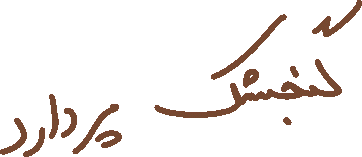 گنجشک پر دارد